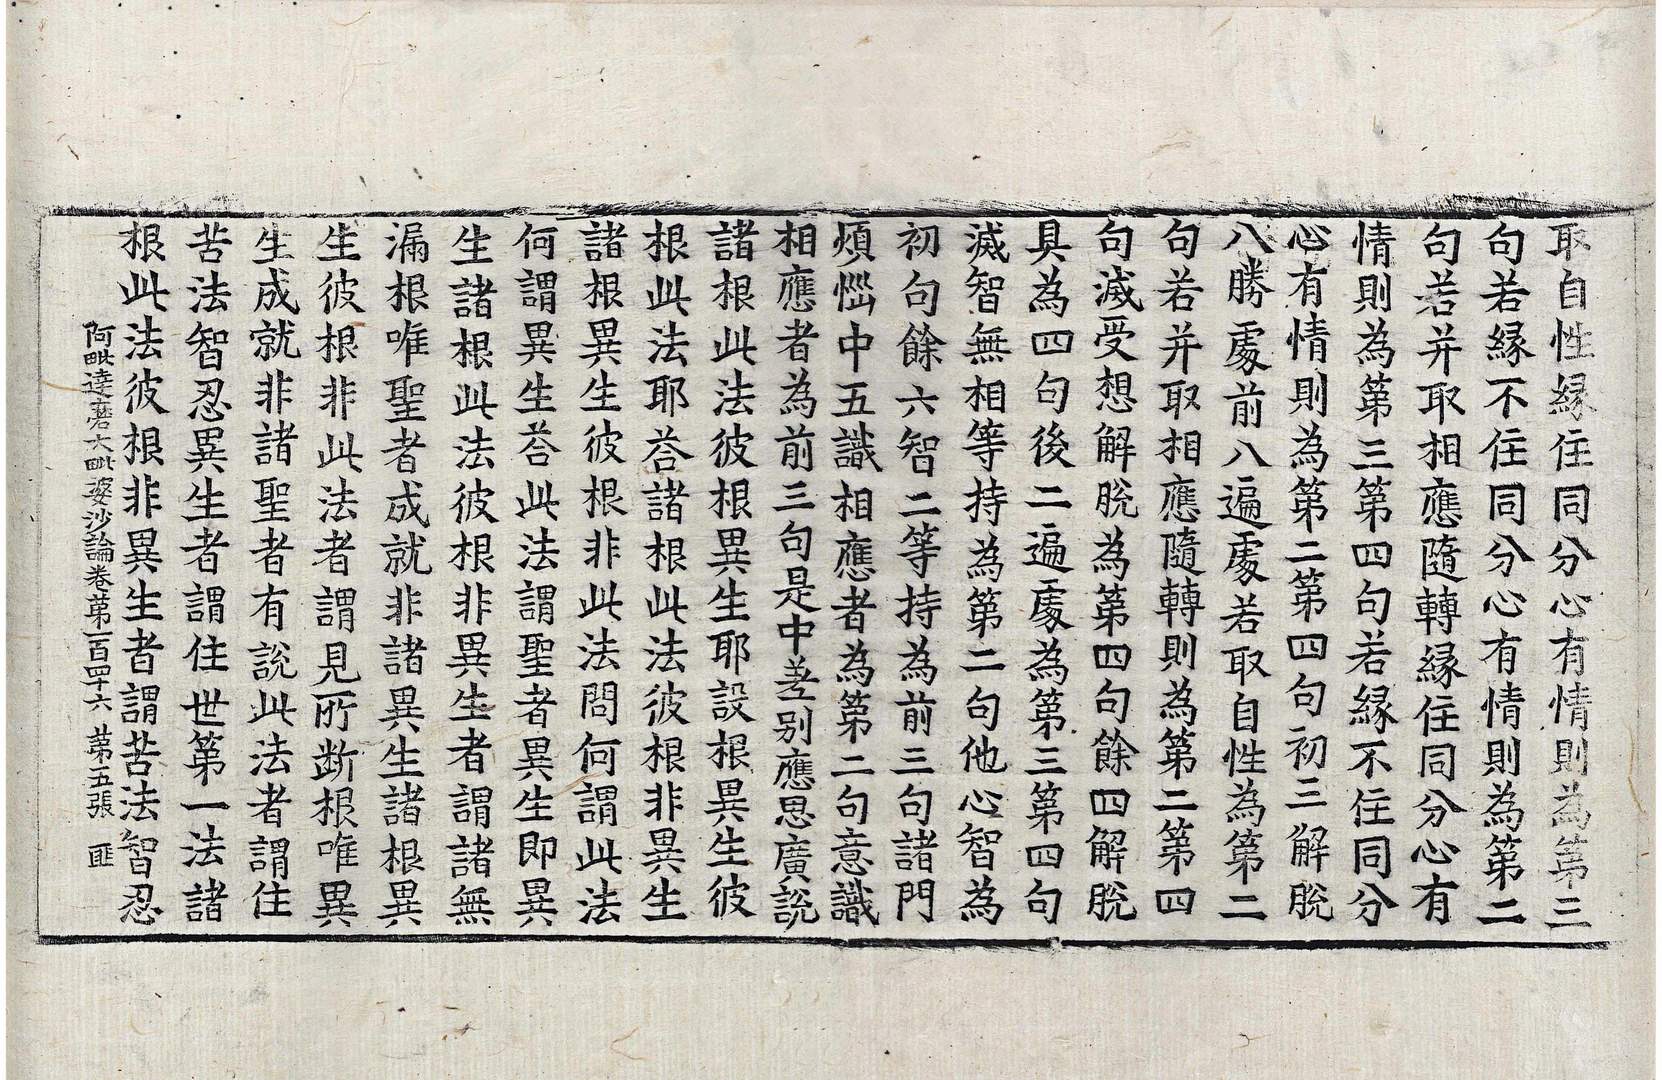 取自性緣住同分心有情則為第三
句若緣不住同分心有情則為第二
句若并取相應隨轉緣住同分心有
情則為第三第四句若緣不住同分
心有情則為第二第四句初三解脫
八勝處前八遍處若取自性為第二
句若并取相應隨轉則為第二第四
句滅受想解脫為第四句餘四解脫
具為四句後二遍處為第三第四句
滅智無相等持為第二句他心智為
初句餘六智二等持為前三句諸門
煩惱中五識相應者為第二句意識
相應者為前三句是中差別應思廣說
諸根此法彼根異生耶設根異生彼
根此法耶荅諸根此法彼根非異生
諸根異生彼根非此法問何謂此法
何謂異生荅此法謂聖者異生即異
生諸根此法彼根非異生者謂諸無
漏根唯聖者成就非諸異生諸根異
生彼根非此法者謂見所斷根唯異
生成就非諸聖者有說此法者謂住
苦法智忍異生者謂住世第一法諸
根此法彼根非異生者謂苦法智忍
阿毗達磨大毗婆沙論卷第一百四十六 第五張 匪